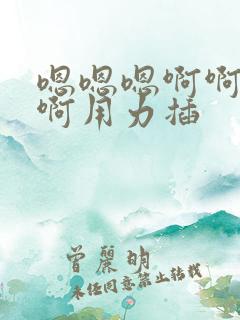 嗯嗯嗯啊啊
啊用力插
曾丽明
未经同意禁止转载